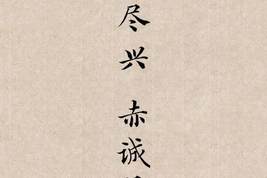 尽兴 赤诚